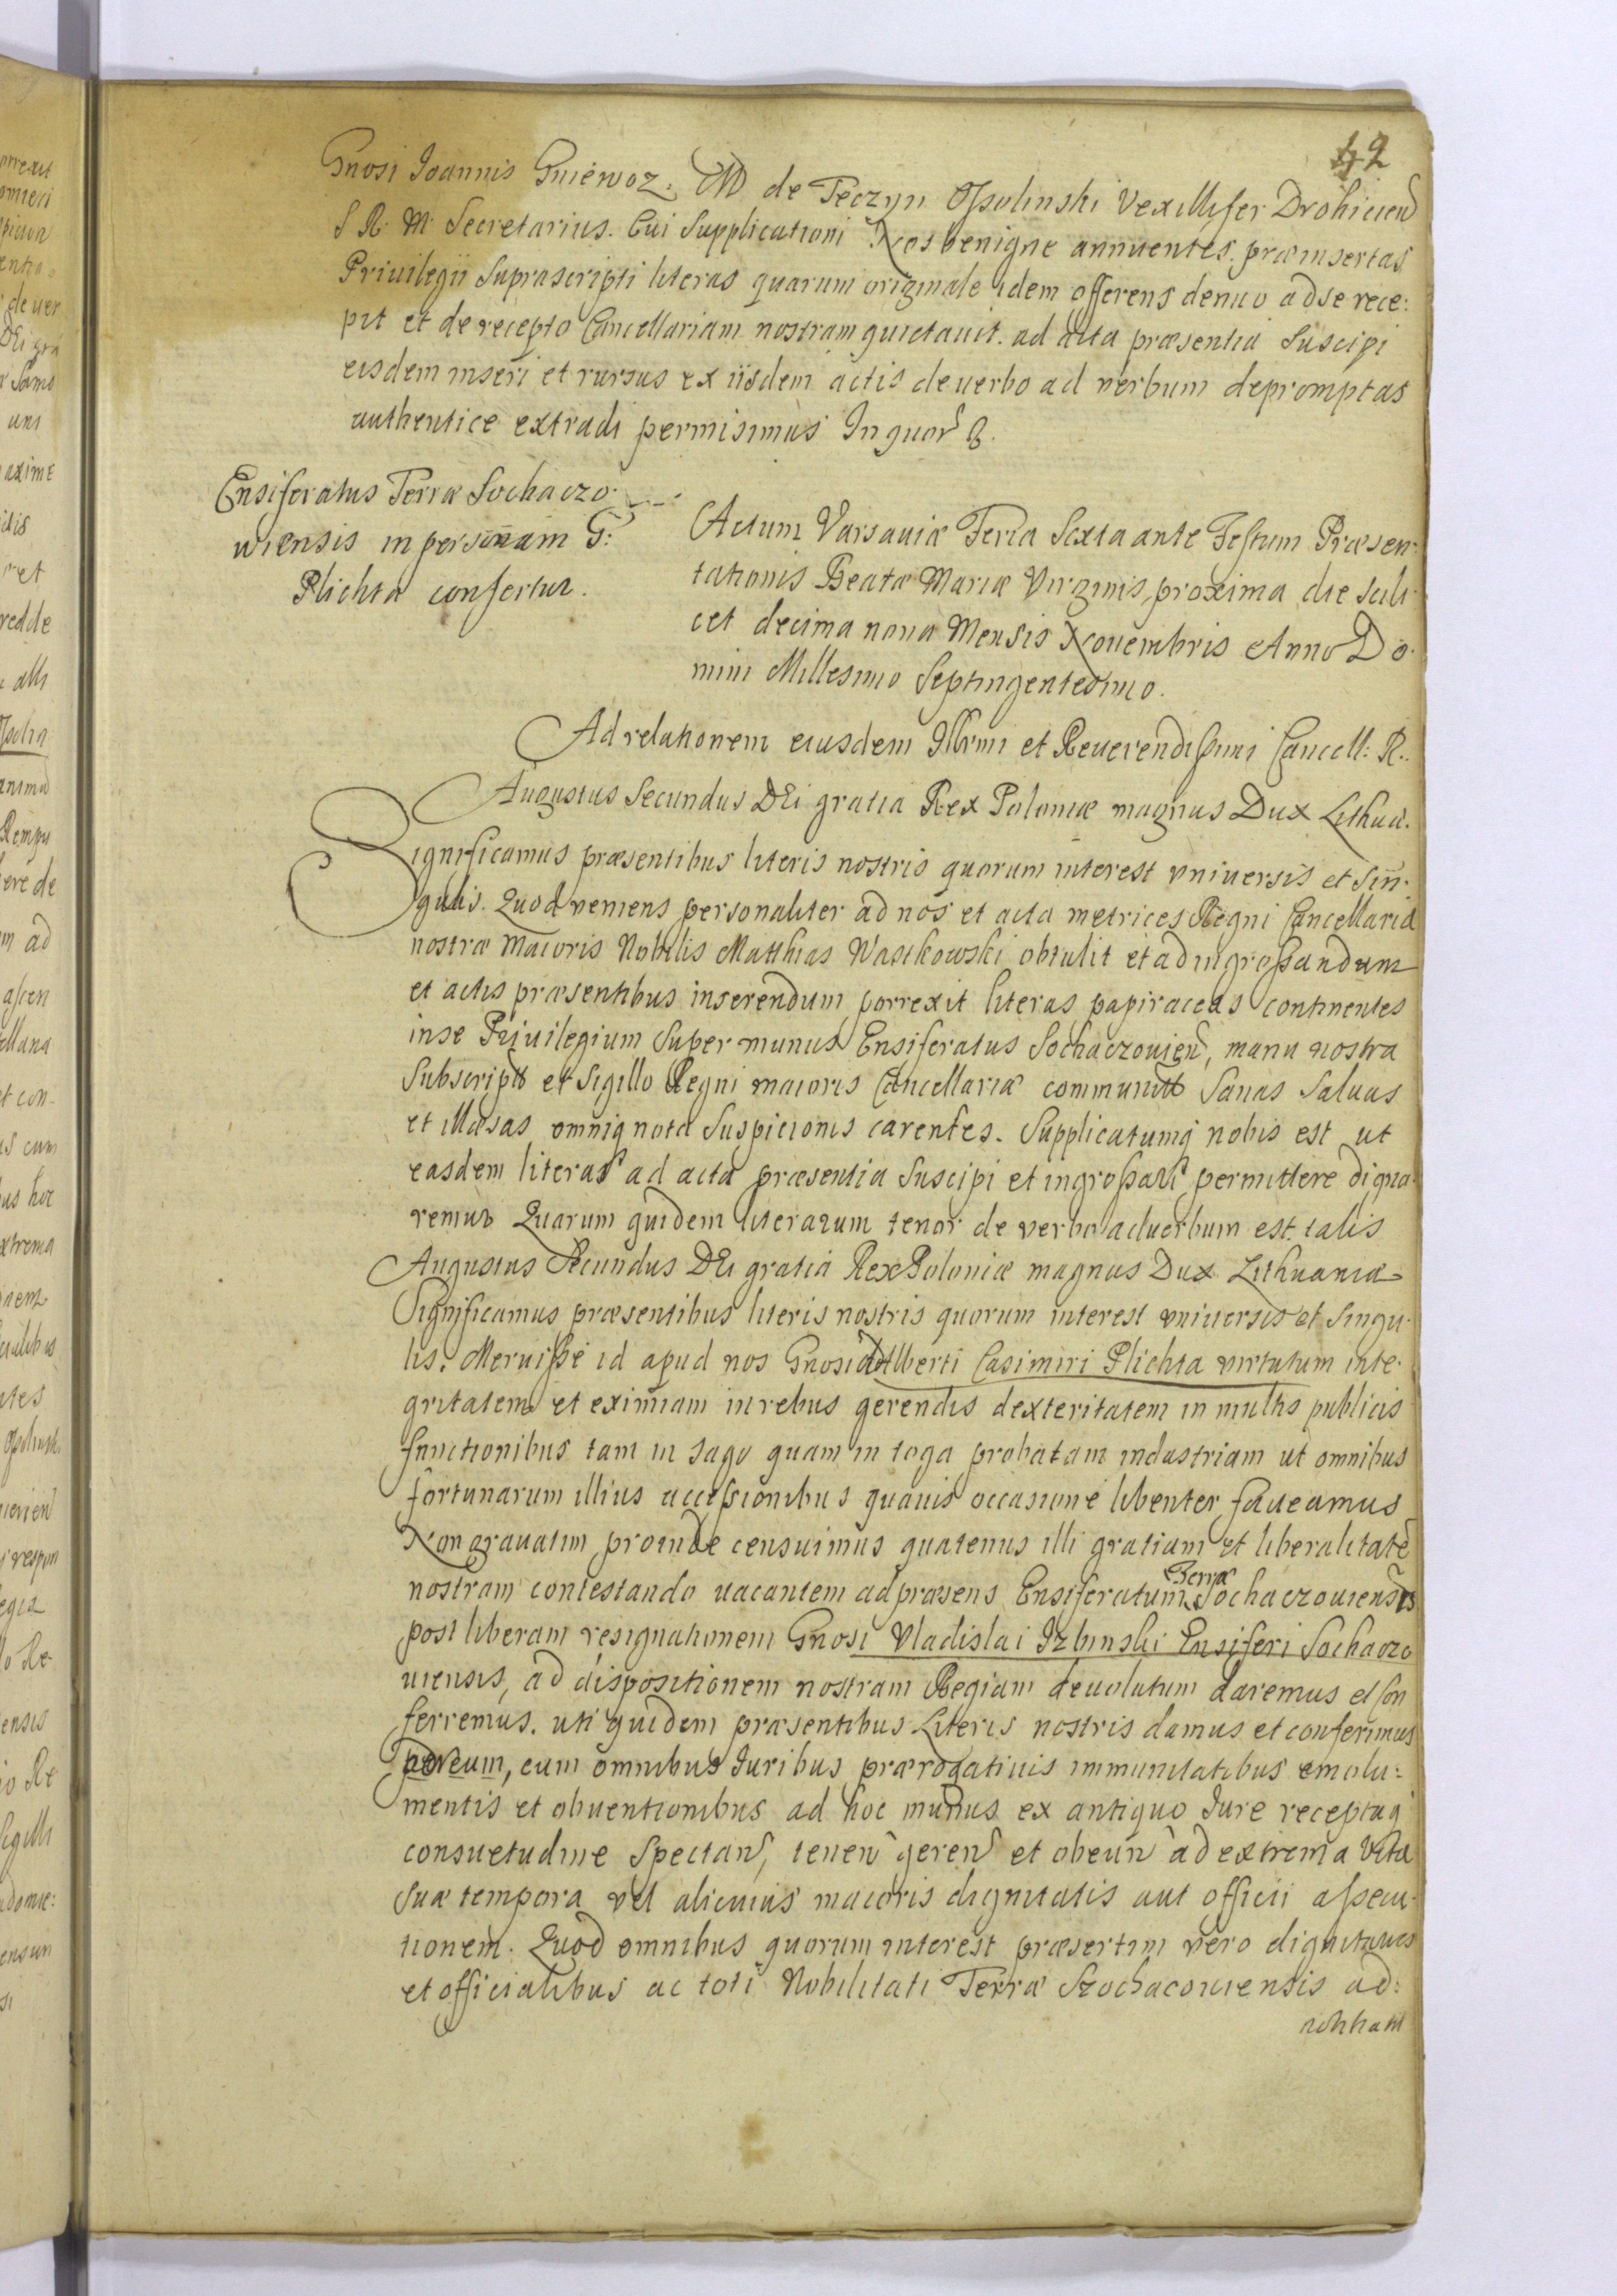 42
Gnosi Ioannis Gniewoz. M de Tęczyn Ossolinski Vexillifer Drohicien̄
S R. M. Secretarius. Cui Supplicationi Nos benigne annuentes. præinsertas
Priuilegii Suprascripti literas quarum originale idem offerens denuo ad se rece:
pit et de recepto Cancellariam nostram quietauit. ad acta præsentia Suscipi
eisdem inseri et rursus ex iisdem actis de verbo ad verbum depromptas
authentice extradi permisimus In quor̄
Ensiferatus Terræ Sochaczo.
wiensis in personam G:
Plichta confertur.
Actum Varsauiæ Feria Sexta ante Festum Præsen.
tationis Beatæ Mariæ Virginis proxima die scili.
cet decima nona Mensis Nouembris Anno Do.
mini Millesimo Septingentesimo.
Ad relationem eiusdem Illrmi et Reuerendissimi Cancell: R.
Augustus Secundus DEi gratia Rex Poloniæ magnus Dux Lithua.
Significamus præsentibus literis nostris quorum interest vniuersis et Sin.
gulis. Quod veniens personaliter ad nos et acta metrices Regni Cancellariæ
nostræ Maioris Nobilis Matthias Wasikowski obtulit et ad ingrossandum
et actis præsentibus inserendum porrexit literas papiraceas continentes
in se Priuilegium Super munus Ensiferatus Sochaczouien̄, manu nostra
Subscriptas et Sigillo Regni maioris Cancellariæ communitas Sanas Saluas
et illæsas omniq nota Suspicionis carentes. Supplicatumq nobis est ut
easdem literas ad acta præsentia Suscipi et ingrossari permittere digna.
remur Quarum quidem literarum tenor de verbo ad verbum est talis
Augustus Secundus DEi gratia Rex Poloniæ magnus Dux Lithuaniæ
Significamus præsentibus literis nostris quorum interest vniuersis et Singu.
lis. Meruisse id apud nos Gnosi Alberti Casimiri Plichta virtutum inte.
gritatem et eximiam in rebus gerendis dexteritatem in multis publicis
functionibus tam in sago quam in toga probatam industriam ut omnibus
fortunarum illius accessionibus quauis occasione libenter faueamus
Non grauatim proinde censuimus quatenus illi gratiam et liberalitatē
nostram contestando uacantem ad præsens Ensiferatum Terræ Sochaczouiensis
post liberam resignationem Gnosi Vladislai Izbinski Ensiferi Sochaczo
uiensis, ad dispositionem nostram Regiam deuolutum daremus et con
ferremus. uti quidem præsentibus Literis nostris damus et conferimus
per eum, cum omnibus Iuribus prærogatiuis immunitatibus emolu:
mentis et obuentionibus ad hoc munus ex antiquo Iure receptaq
consuetudine Spectan̄, tenen̄ geren̄ et obeun̄ ad extrema Vitæ
suæ tempora vel alicuius maioris dignitatis aut officii assecu.
tionem. Quod omnibus quorum interest præsertim vero dignitariis
et officialibus ac toti Nobilitati Terræ Szochaczouiensis ad: